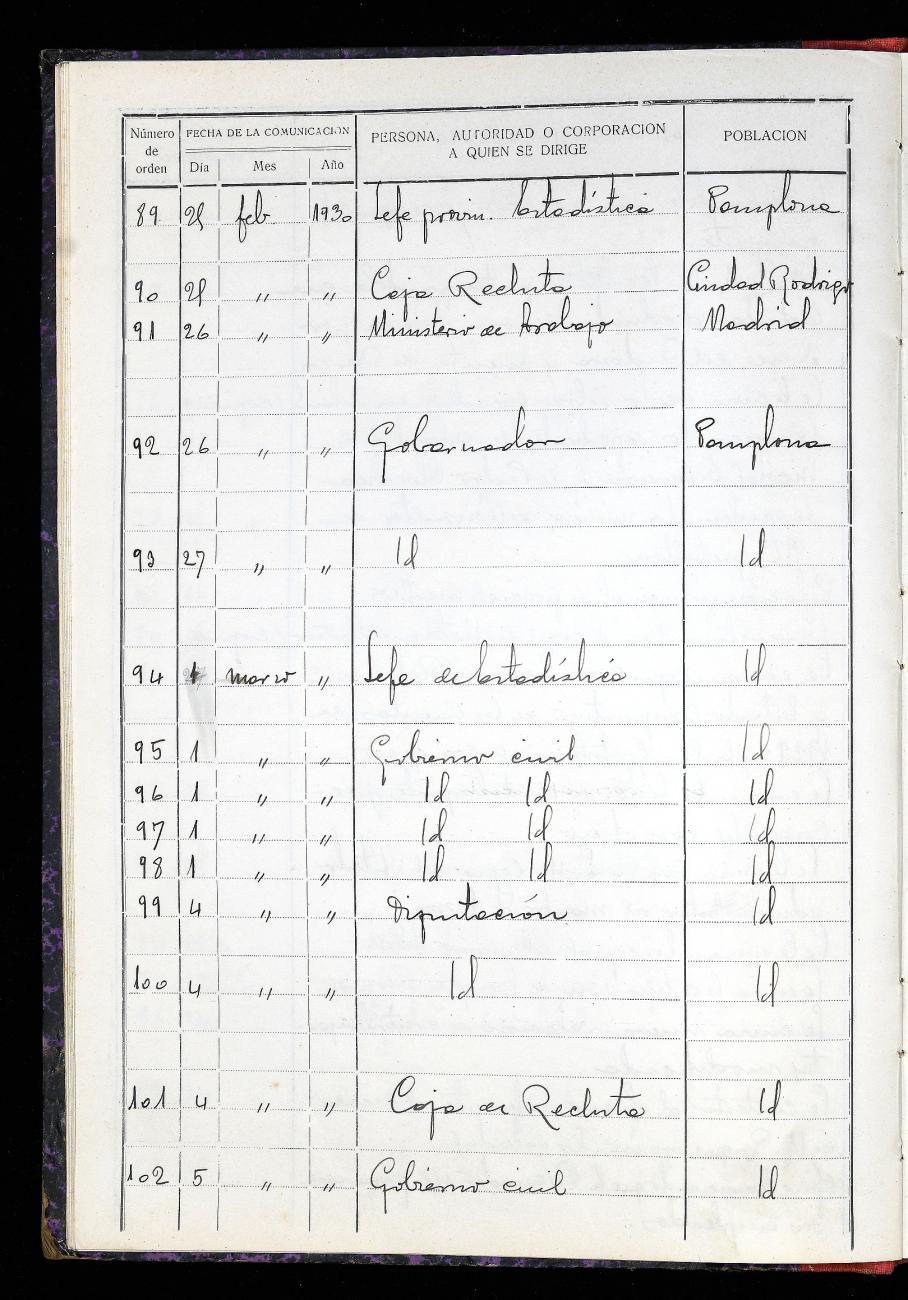 Número de orden FECHA DE LA COMUNICACION PERSONA, AUTORIDAD O CORPORACION A QUIEN SE DIRIGE POBLACION
Día Mes Año
89 25 feb 1930 Jefe provin. Estadística Pamplona
90 25 " " Caja Recluta Ciudad Rodrigo
91 26 " " Ministerio de Trabajo Madrid
92 26 " " Gobernador Pamplona
93 27 " " Id Id
94 1 marzo " Jefe de Estadística Id
95 1 " " Gobierno civil Id
96 1 " " Id Id Id
97 1 " " Id Id Id
98 1 " " Id Id Id
99 4 " " Diputación Id
100 4 " " Id Id
101 4 " " Caja de Recluta Id
102 5 " " Gobierno civil Id